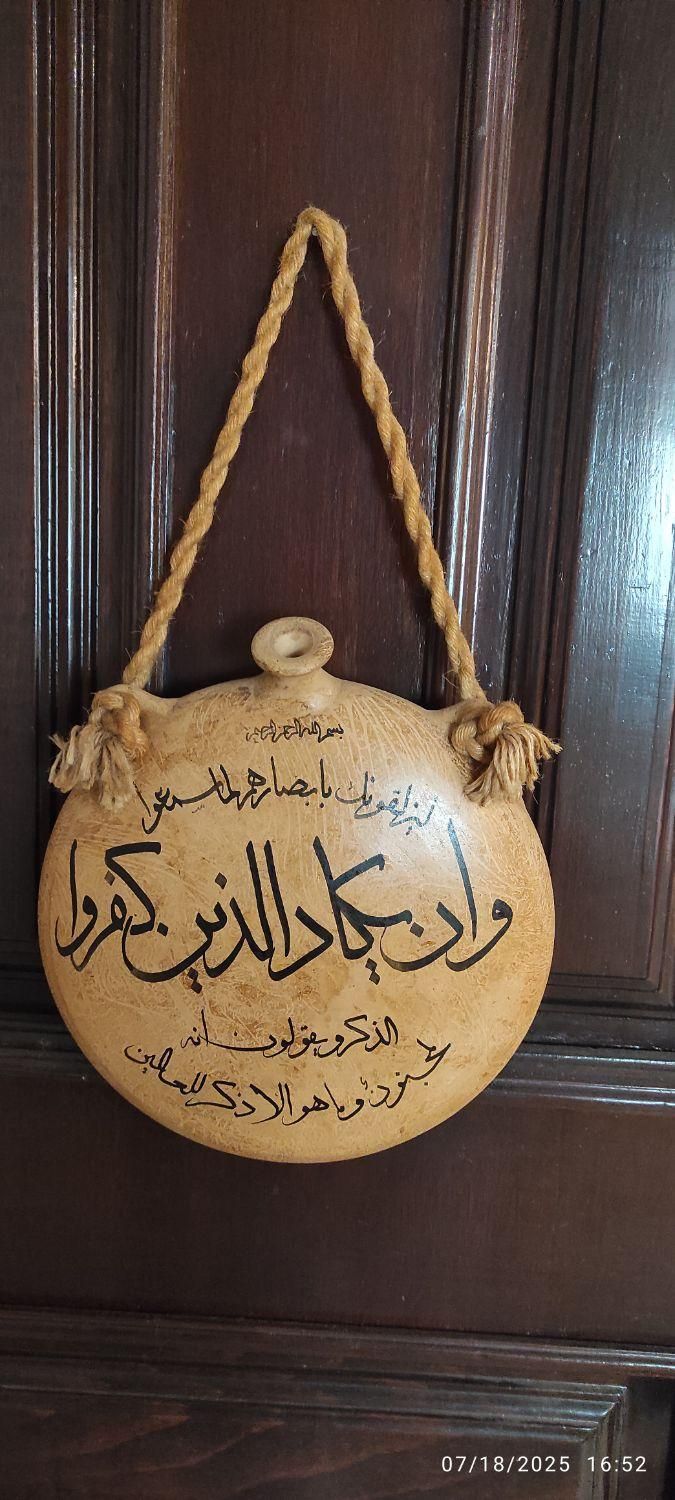 بسم الله الرحمن الرحيم
ليزلقونك بابصارهم لما سمعوا
وان يكاد الذين كفروا
الذكر ويقولون انه
لمجنون وما هو الا ذكر للعالمين
07/18/2025 16:52